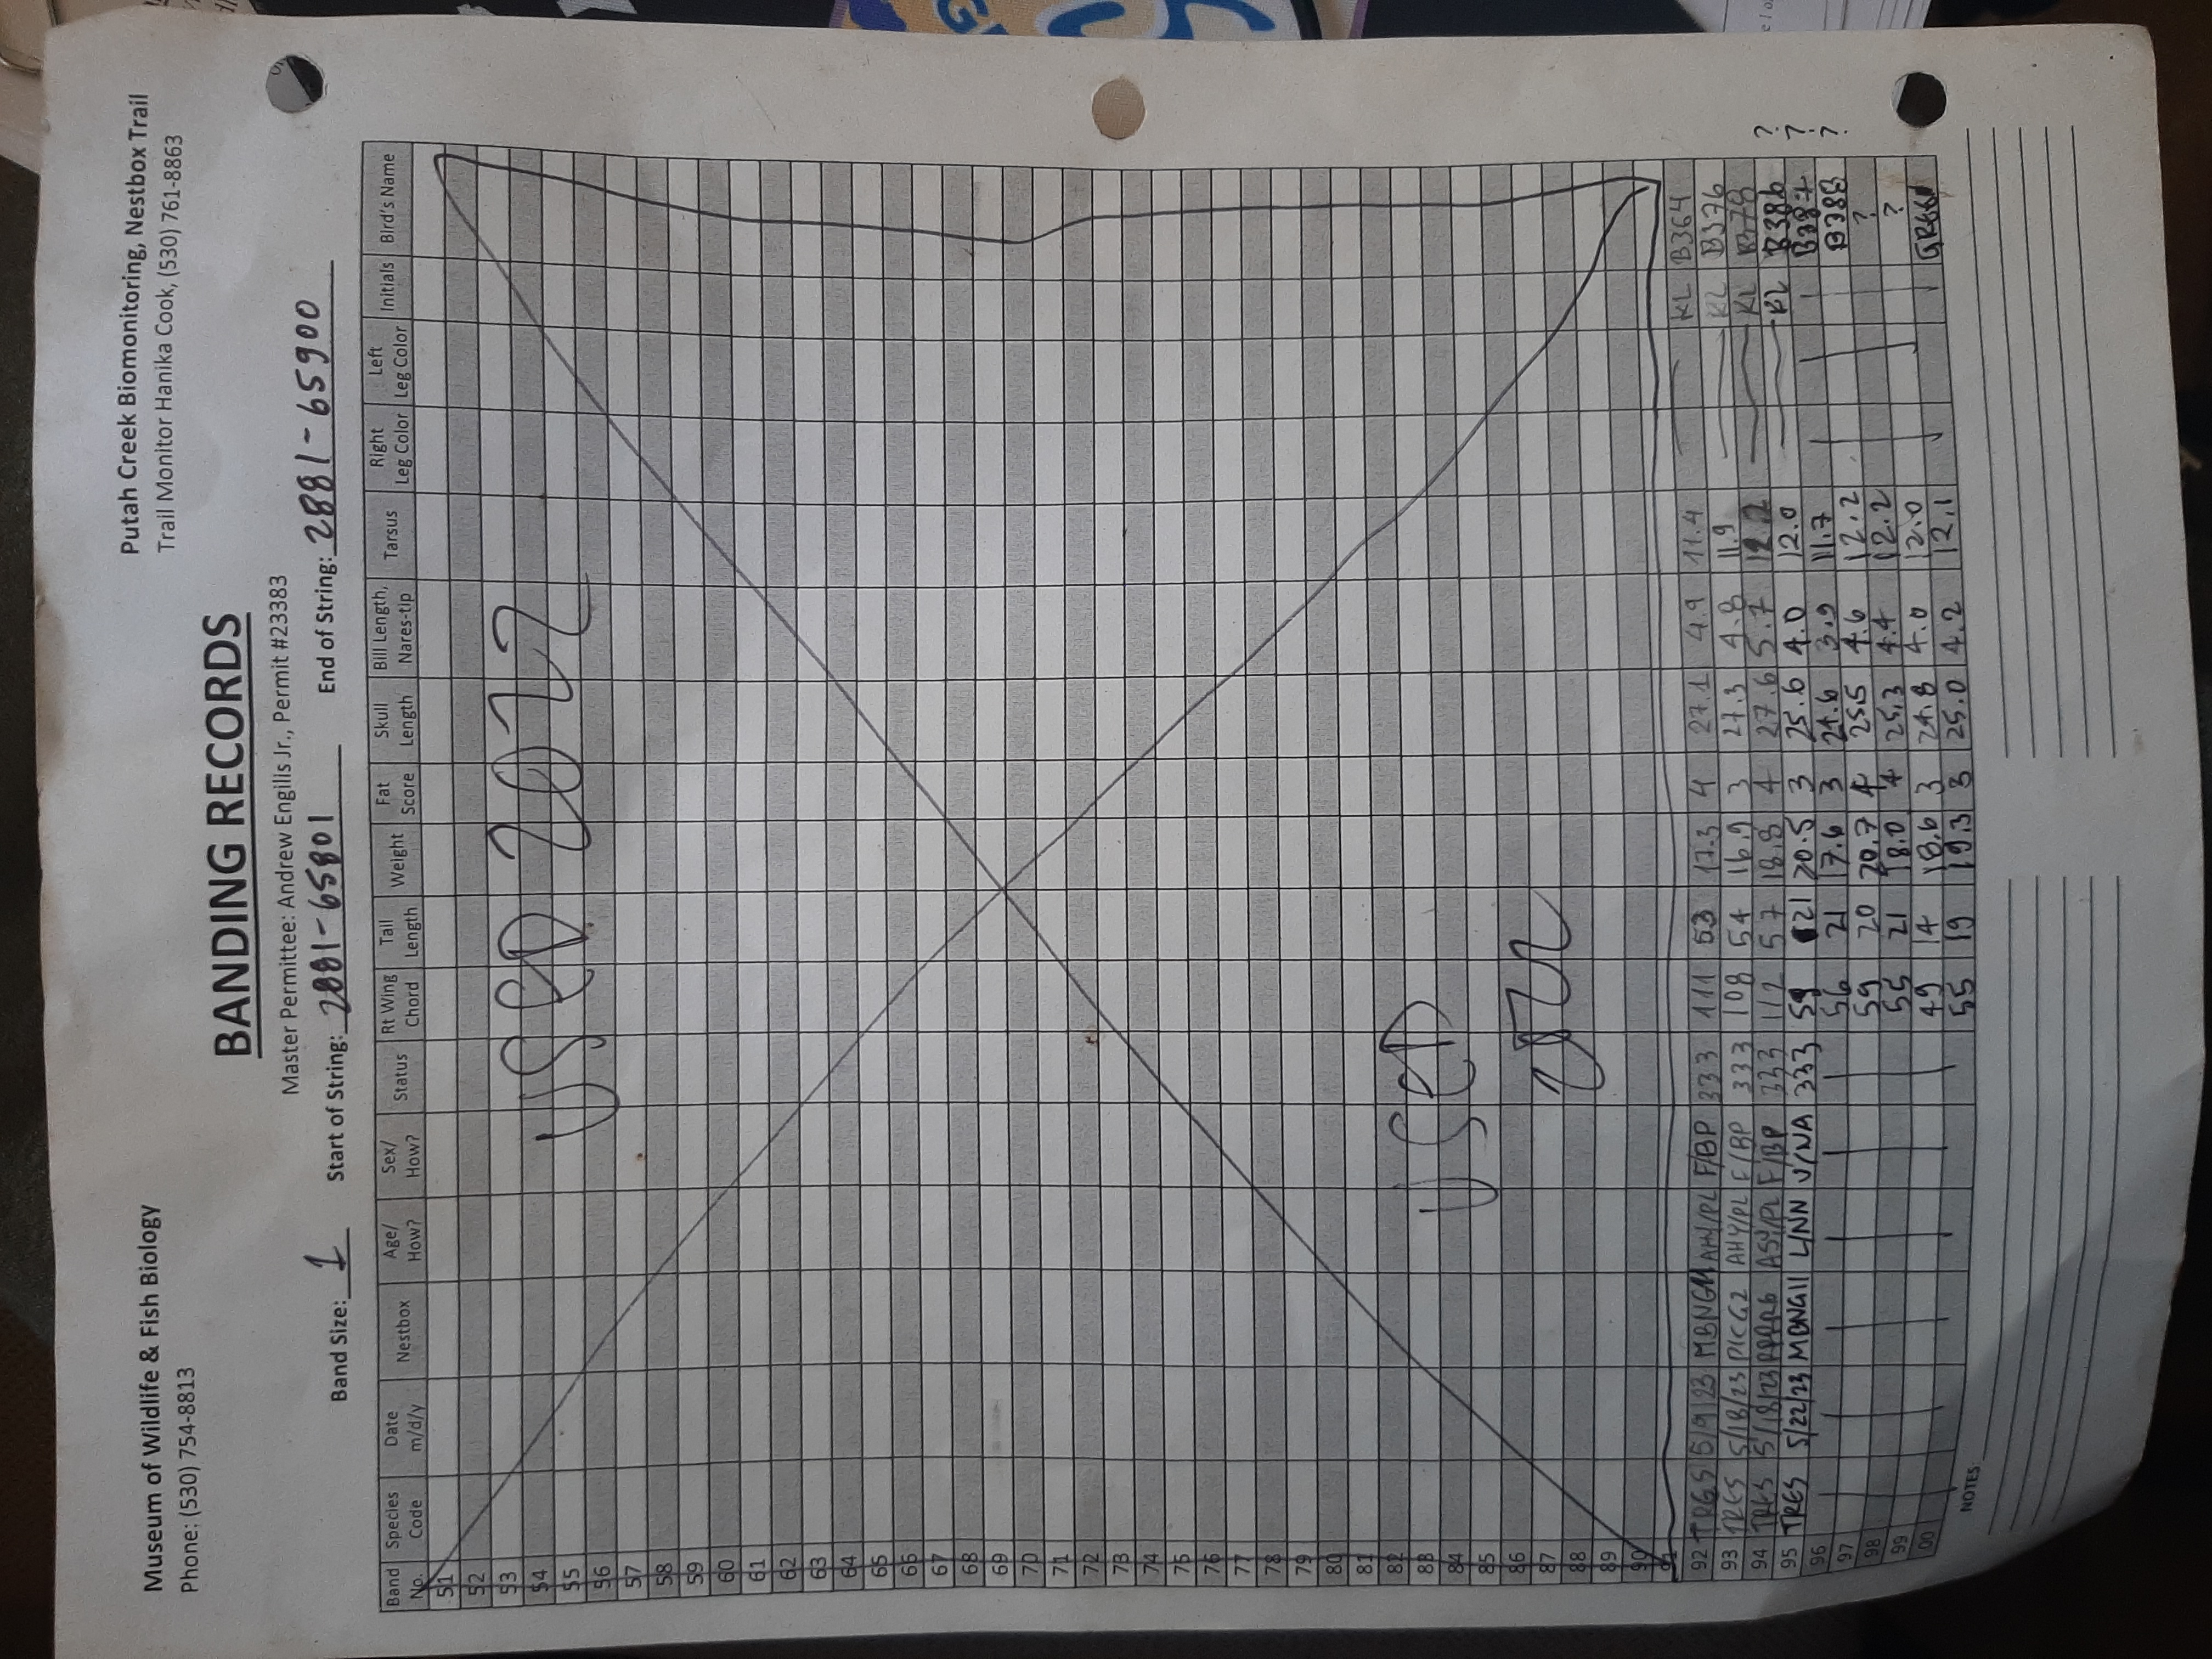 Museum of Wildlife & Fish Biology
Phone: (530) 754-8813
Putah Creek Biomonitoring, Nestbox Trail
Trail Monitor Hanika Cook, (530) 761-8863
BANDING RECORDS
Master Permittee: Andrew Engilis Jr., Permit #23383
Band Size: 1 Start of String: 2881-65801 End of String: 2881-65900
Band No. Species Code Date m/d/y Nestbox Age/ How? Sex/ How? Status Rt Wing Chord Tail Length Weight Fat Score Skull Length Bill Length, Nares-tip Tarsus Right Leg Color Left Leg Color Initials Bird's Name
51
52
53
USED 2022
54
55
56
57
58
59
60
61
62
63
64
65
66
67
68
69
70
71
72
73
74
75
76
77
78
79
80
81
82
83
USED
84
85
86
87
2022
88
89
90
91
92 TRES 5/9/23 MBNG11 AHY/PL F/BP 333 111 53 17.3 4 27.1 4.9 11.4 KL B364
93 TRES 5/18/23 PICG2 AHY/PL F/BP 333 108 54 16.9 3 27.3 4.8 11.9 KL B376
94 TRES 5/18/23 ASY/PL F/BP 333 112 57 18.8 4 27.6 5.7 12.2 KL B378
95 TRES 5/22/23 MBNG11 L/NN U/NA 333 59 21 20.5 3 25.6 4.0 12.0 KL B386 ?
96 56 21 17.6 3 24.6 3.9 11.7 B387 ?
97 59 20 20.7 4 25.5 4.6 12.2 B388 ?
98 55 21 18.0 4 25.3 4.4 12.2 ?
99 49 14 18.6 3 24.8 4.0 12.0 ?
00 55 19 19.3 3 25.0 4.2 12.1
NOTES: